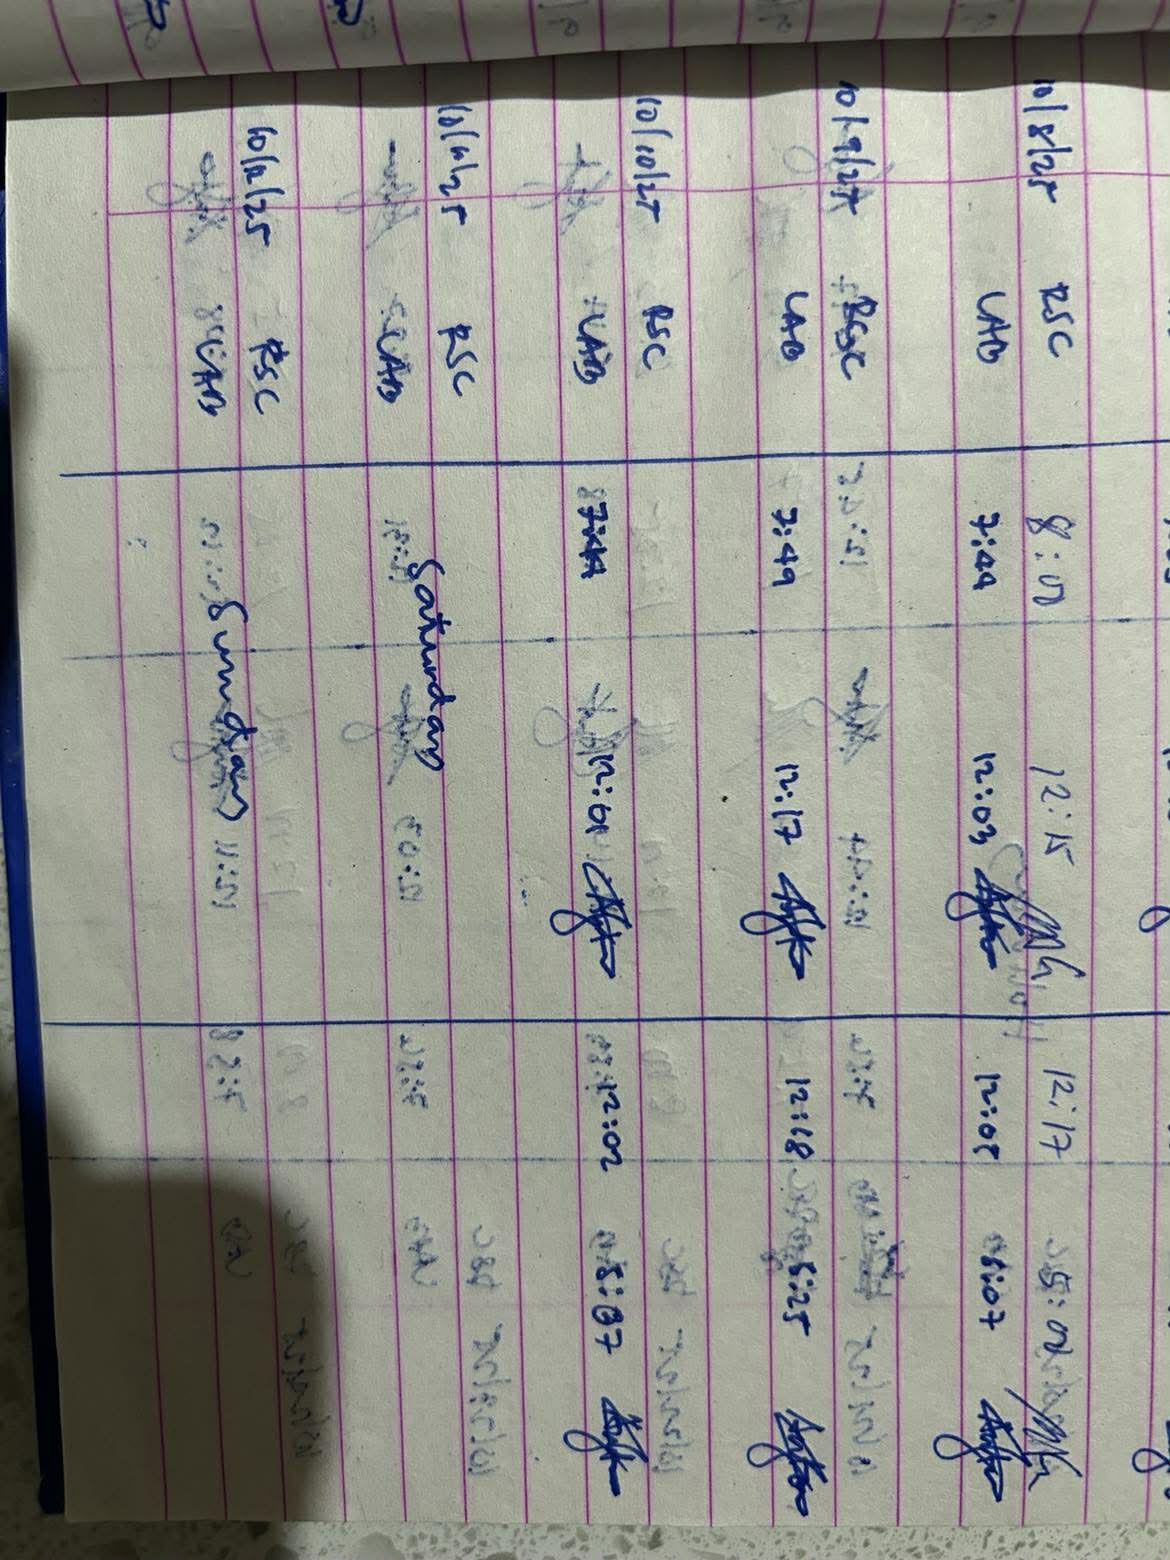 10/8/25 RSC 8:00 12:15 12:17 5:02
LAB 7:49 12:03 12:05 5:07
10/9/25 RSC
LAB 7:49 12:17 12:18 5:25
10/10/25 RSC
LAB 7:49 12:01 12:02 5:07
10/11/25 RSC Saturday
LAB
10/12/25 RSC Sunday
LAB